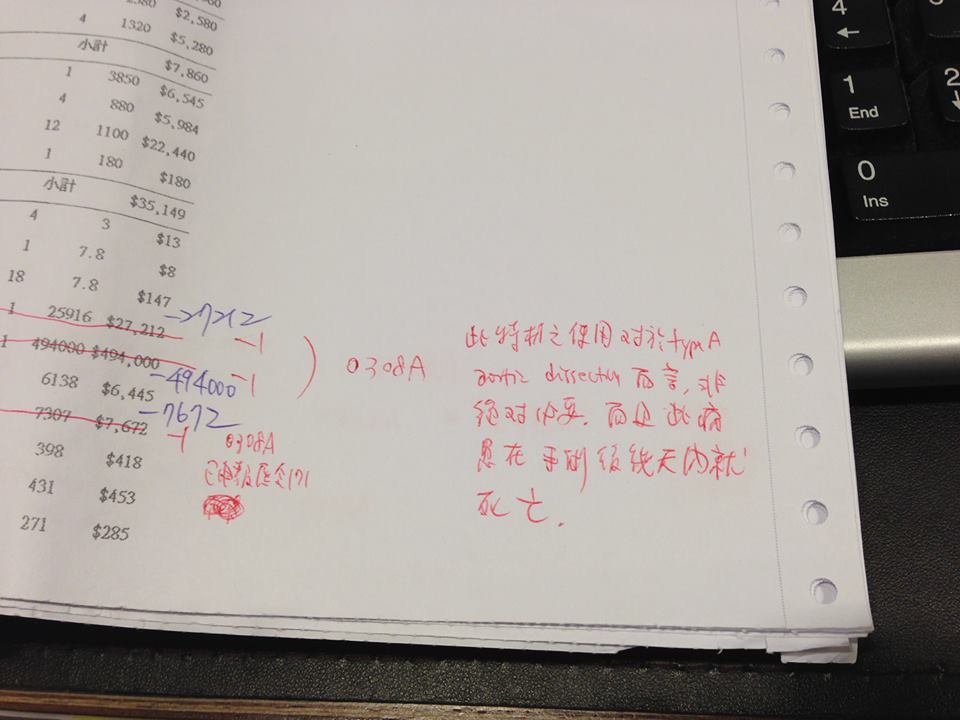 $2,580
4 1320 $5,280
小計 $7,860
1 3850 $6,545
4 880 $5,984
12 1100 $22,440
1 180 $180
小計 $35,149
4 3 $13
1 7.8 $8
18 7.8 $147
1 25916 $27,212 -27212
-1
1 494000 $494,000
-494000 -1
) 0308A
6138 $6,445
7307 $7,672 -7672
-1 0308A
398 $418
431 $453
271 $285
此特材之使用对於type A
aortic dissection 而言,非
绝对必要.而且此病
患在手術後幾天內就
死亡.
4
←
1
End
2
↓
0
Ins